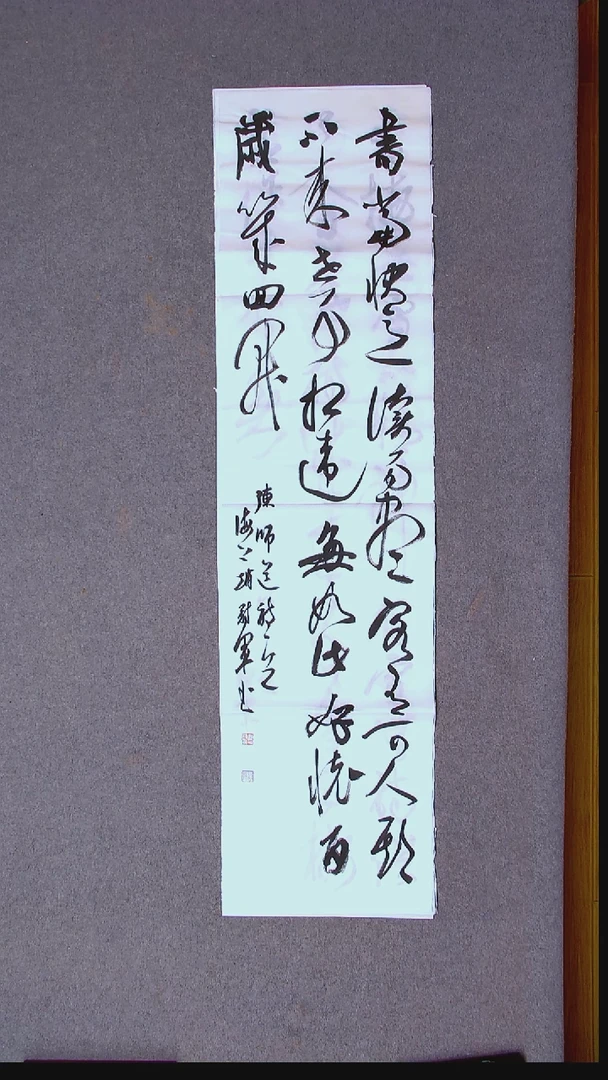 書當快意讀易盡客有可人期
不來世事相違每如此好懷百
歲幾回開
陳師道詩
海上趙軍書